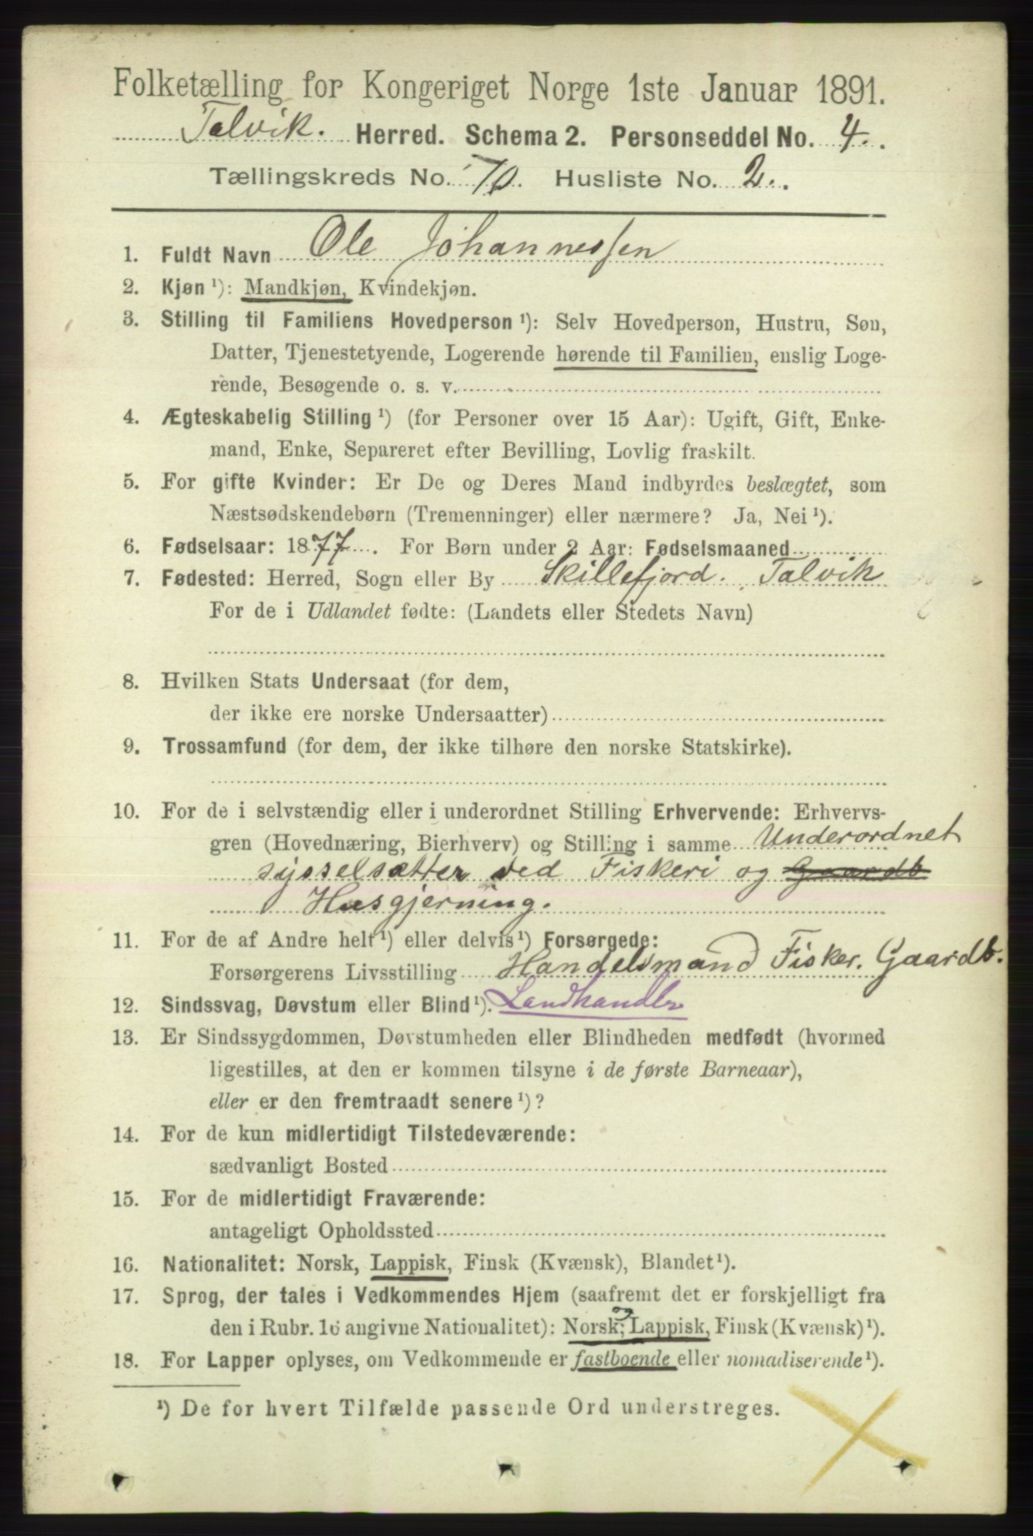 Folketælling for Kongeriget Norge 1ste Januar 1891.
Talvik. Herred. Schema 2. Personseddel No. 4.
Tællingskreds No. 10. Husliste No. 2.
1. Fuldt Navn Ole Johannessen
2. Kjøn ¹): Mandkjøn, Kvindekjøn.
3. Stilling til Familiens Hovedperson ¹): Selv Hovedperson, Hustru, Søn,
Datter, Tjenestetyende, Logerende hørende til Familien, enslig Loge-
rende, Besøgende o. s. v.
4. Ægteskabelig Stilling ¹) (for Personer over 15 Aar): Ugift, Gift, Enke-
mand, Enke, Separeret efter Bevilling, Lovlig fraskilt.
5. For gifte Kvinder: Er De og Deres Mand indbyrdes beslægtet, som
Næstsødskendebørn (Tremenninger) eller nærmere? Ja, Nei ¹).
6. Fødselsaar: 1877. For Børn under 2 Aar: Fødselsmaaned
7. Fødested: Herred, Sogn eller By Skillefjord. Talvik
For de i Udlandet fødte: (Landets eller Stedets Navn)
8. Hvilken Stats Undersaat (for dem,
der ikke ere norske Undersaatter)
9. Trossamfund (for dem, der ikke tilhøre den norske Statskirke).
10. For de i selvstændig eller i underordnet Stilling Erhvervende: Erhvervs-
gren (Hovednæring, Bierhverv) og Stilling i samme Underordnet
sysselsætter ved Fiskeri og Gaardb
Husgjerning.
11. For de af Andre helt ¹) eller delvis ¹) Forsørgede:
Forsørgerens Livsstilling Handelsmand Fisker. Gaardb.
12. Sindssvag, Døvstum eller Blind ¹). Landhandler
13. Er Sindssygdommen, Døvstumheden eller Blindheden medfødt (hvormed
ligestilles, at den er kommen tilsyne i de første Barneaar),
eller er den fremtraadt senere ¹)?
14. For de kun midlertidigt Tilstedeværende:
sædvanligt Bosted
15. For de midlertidigt Fraværende:
antageligt Opholdssted
16. Nationalitet: Norsk, Lappisk, Finsk (Kvænsk), Blandet ¹).
17. Sprog, der tales i Vedkommendes Hjem (saafremt det er forskjelligt fra
den i Rubr. 16 angivne Nationalitet): Norsk, Lappisk, Finsk (Kvænsk) ¹).
18. For Lapper oplyses, om Vedkommende er fastboende eller nomadiserende ¹).
¹) De for hvert Tilfælde passende Ord understreges.